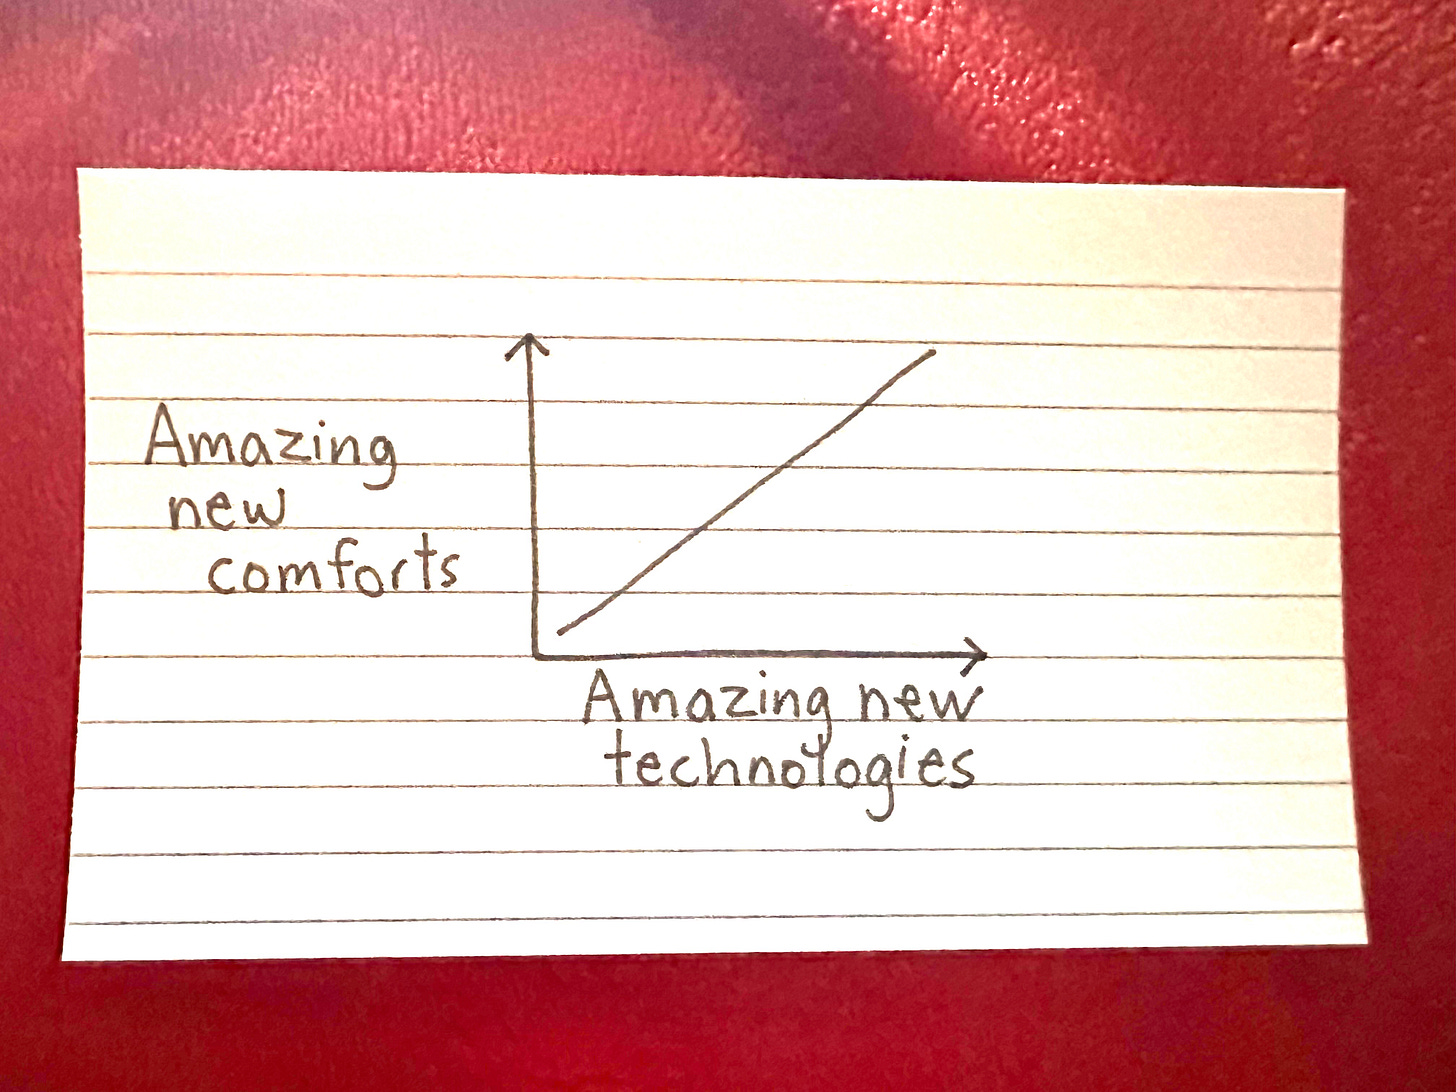 Amazing
new
comforts
Amazing new
technologies